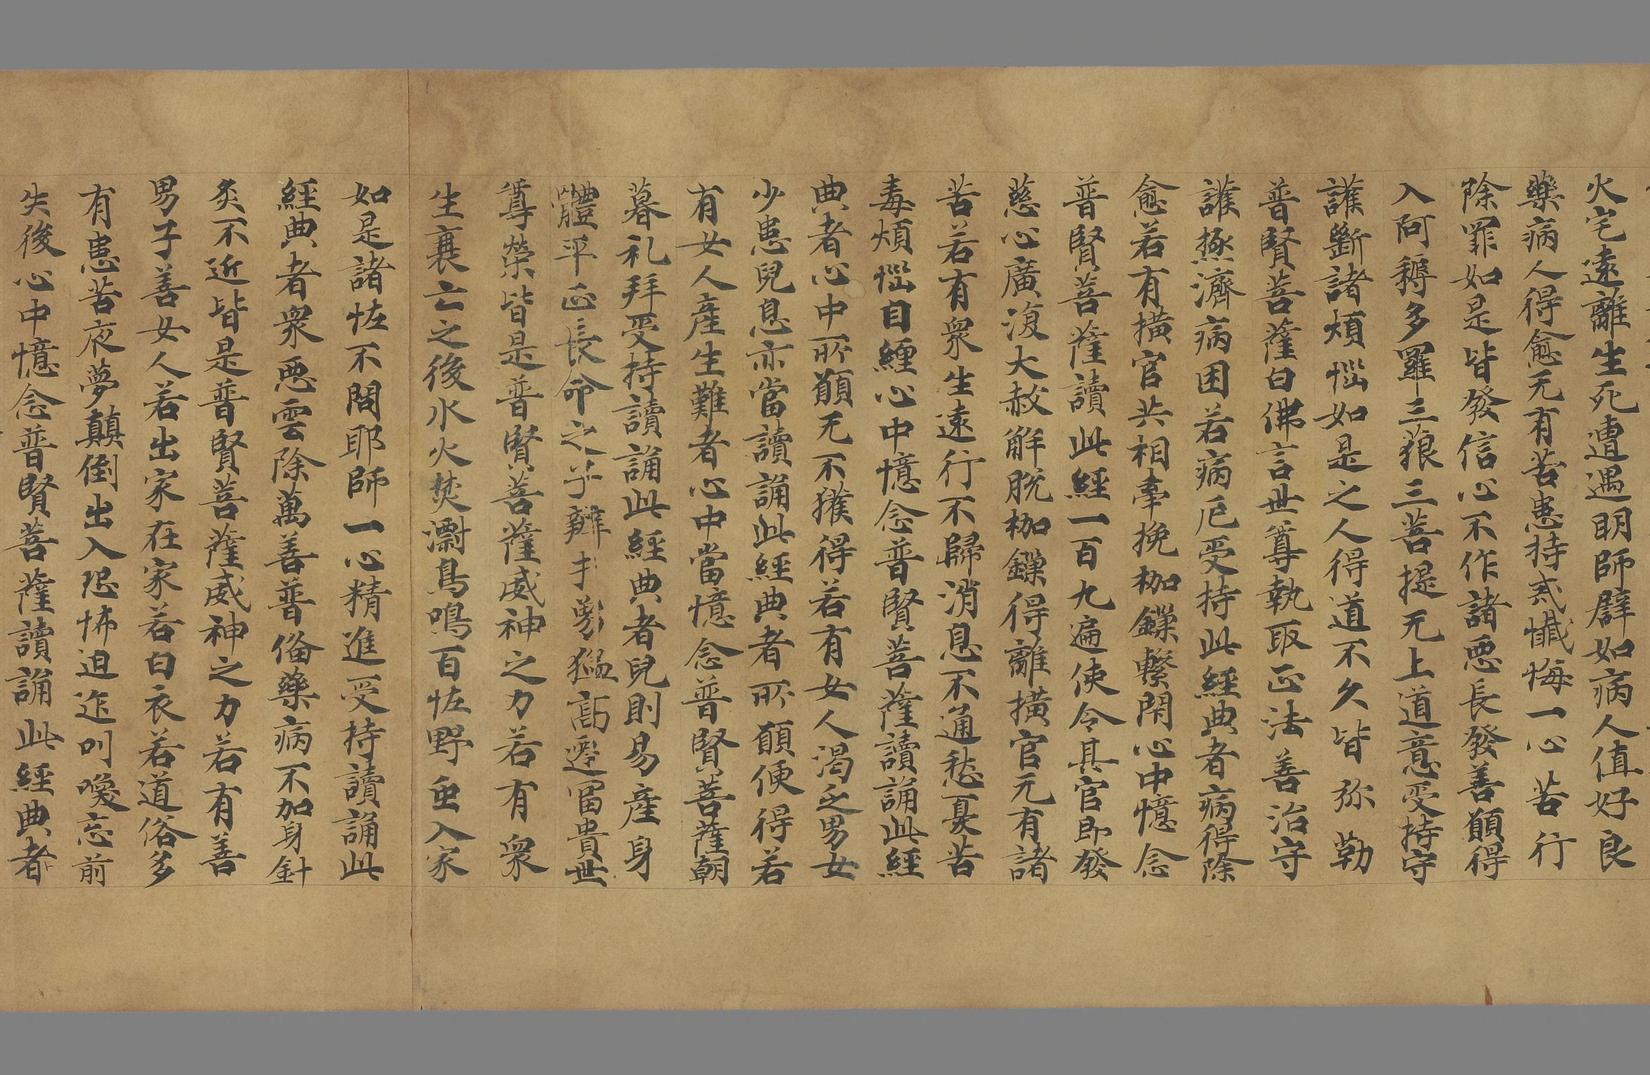 火宅遠離生死遭遇明師辟如病人值好良
藥病人得愈无有苦患持戒懺悔一心苦行
除罪如是皆發信心不作諸惡長發善願得
入阿耨多羅三藐三菩提无上道意受持守
護斷諸煩惱如是之人得道不久皆弥勒
普賢菩薩白佛言世尊執取正法善治守
護拯濟病困若病厄受持此經典者病得除
愈若有橫官共相牽挽枷鏁繫閇心中憶念
普賢菩薩讀此經一百九遍使令其官即發
慈心廣復大赦解脫枷鏁得離橫官无有諸
苦若有衆生遠行不歸消息不通愁憂苦
毒煩惱自纏心中憶念普賢菩薩讀誦此經
典者心中所願无不獲得若有女人渴乏男女
少患兒息亦當讀誦此經典者所願便得若
有女人產生難者心中當憶念普賢菩薩朝
暮礼拜受持讀誦此經典者兒則易產身
體平正長命之子辯才勇猛高遷冨貴世
尊榮皆是普賢菩薩威神之力若有衆
生喪亡之後水火焚漂鳥鳴百恠野虫入家
如是諸恠不問耶師一心精進受持讀誦此
經典者衆惡雲除萬善普俻藥病不加身針
灸不近皆是普賢菩薩威神之力若有善
男子善女人若出家在家若白衣若道俗多
有患苦夜夢顛倒出入恐怖迫迮叫喚忘前
失後心中憶念普賢菩薩讀誦此經典者